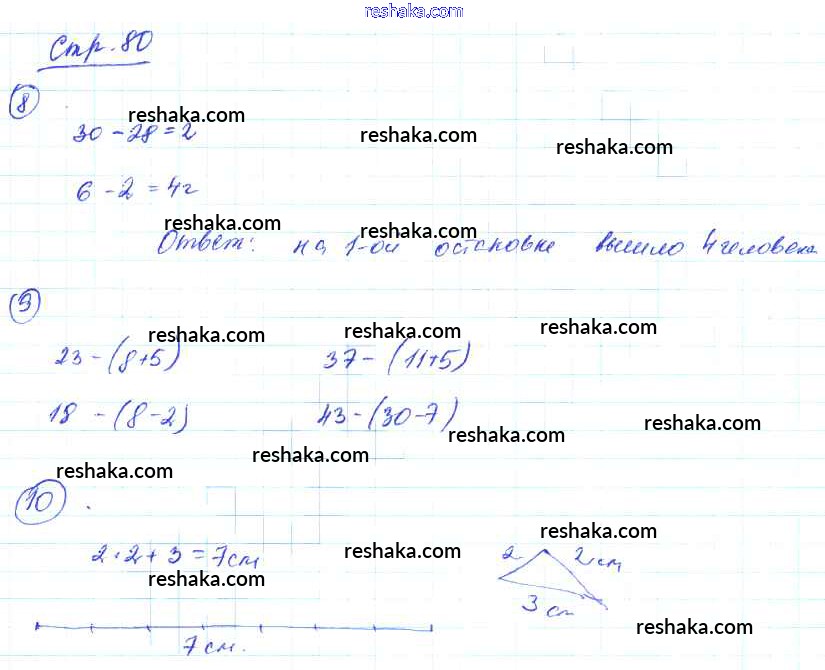 reshaka.com
Стр. 80
8
reshaka.com
30 - 28 = 2
reshaka.com
reshaka.com
6 - 2 = 4г
reshaka.com
reshaka.com
Ответ: на 1-ой остановке вышло 4 человека
9
reshaka.com
reshaka.com
reshaka.com
23 - (8+5)
37 - (11+5)
18 - (8-2)
43 - (30-7)
reshaka.com
reshaka.com
reshaka.com
reshaka.com
10
reshaka.com
2·2 + 3 = 7см
reshaka.com
2
2 см
reshaka.com
3 см
reshaka.com
7 см.